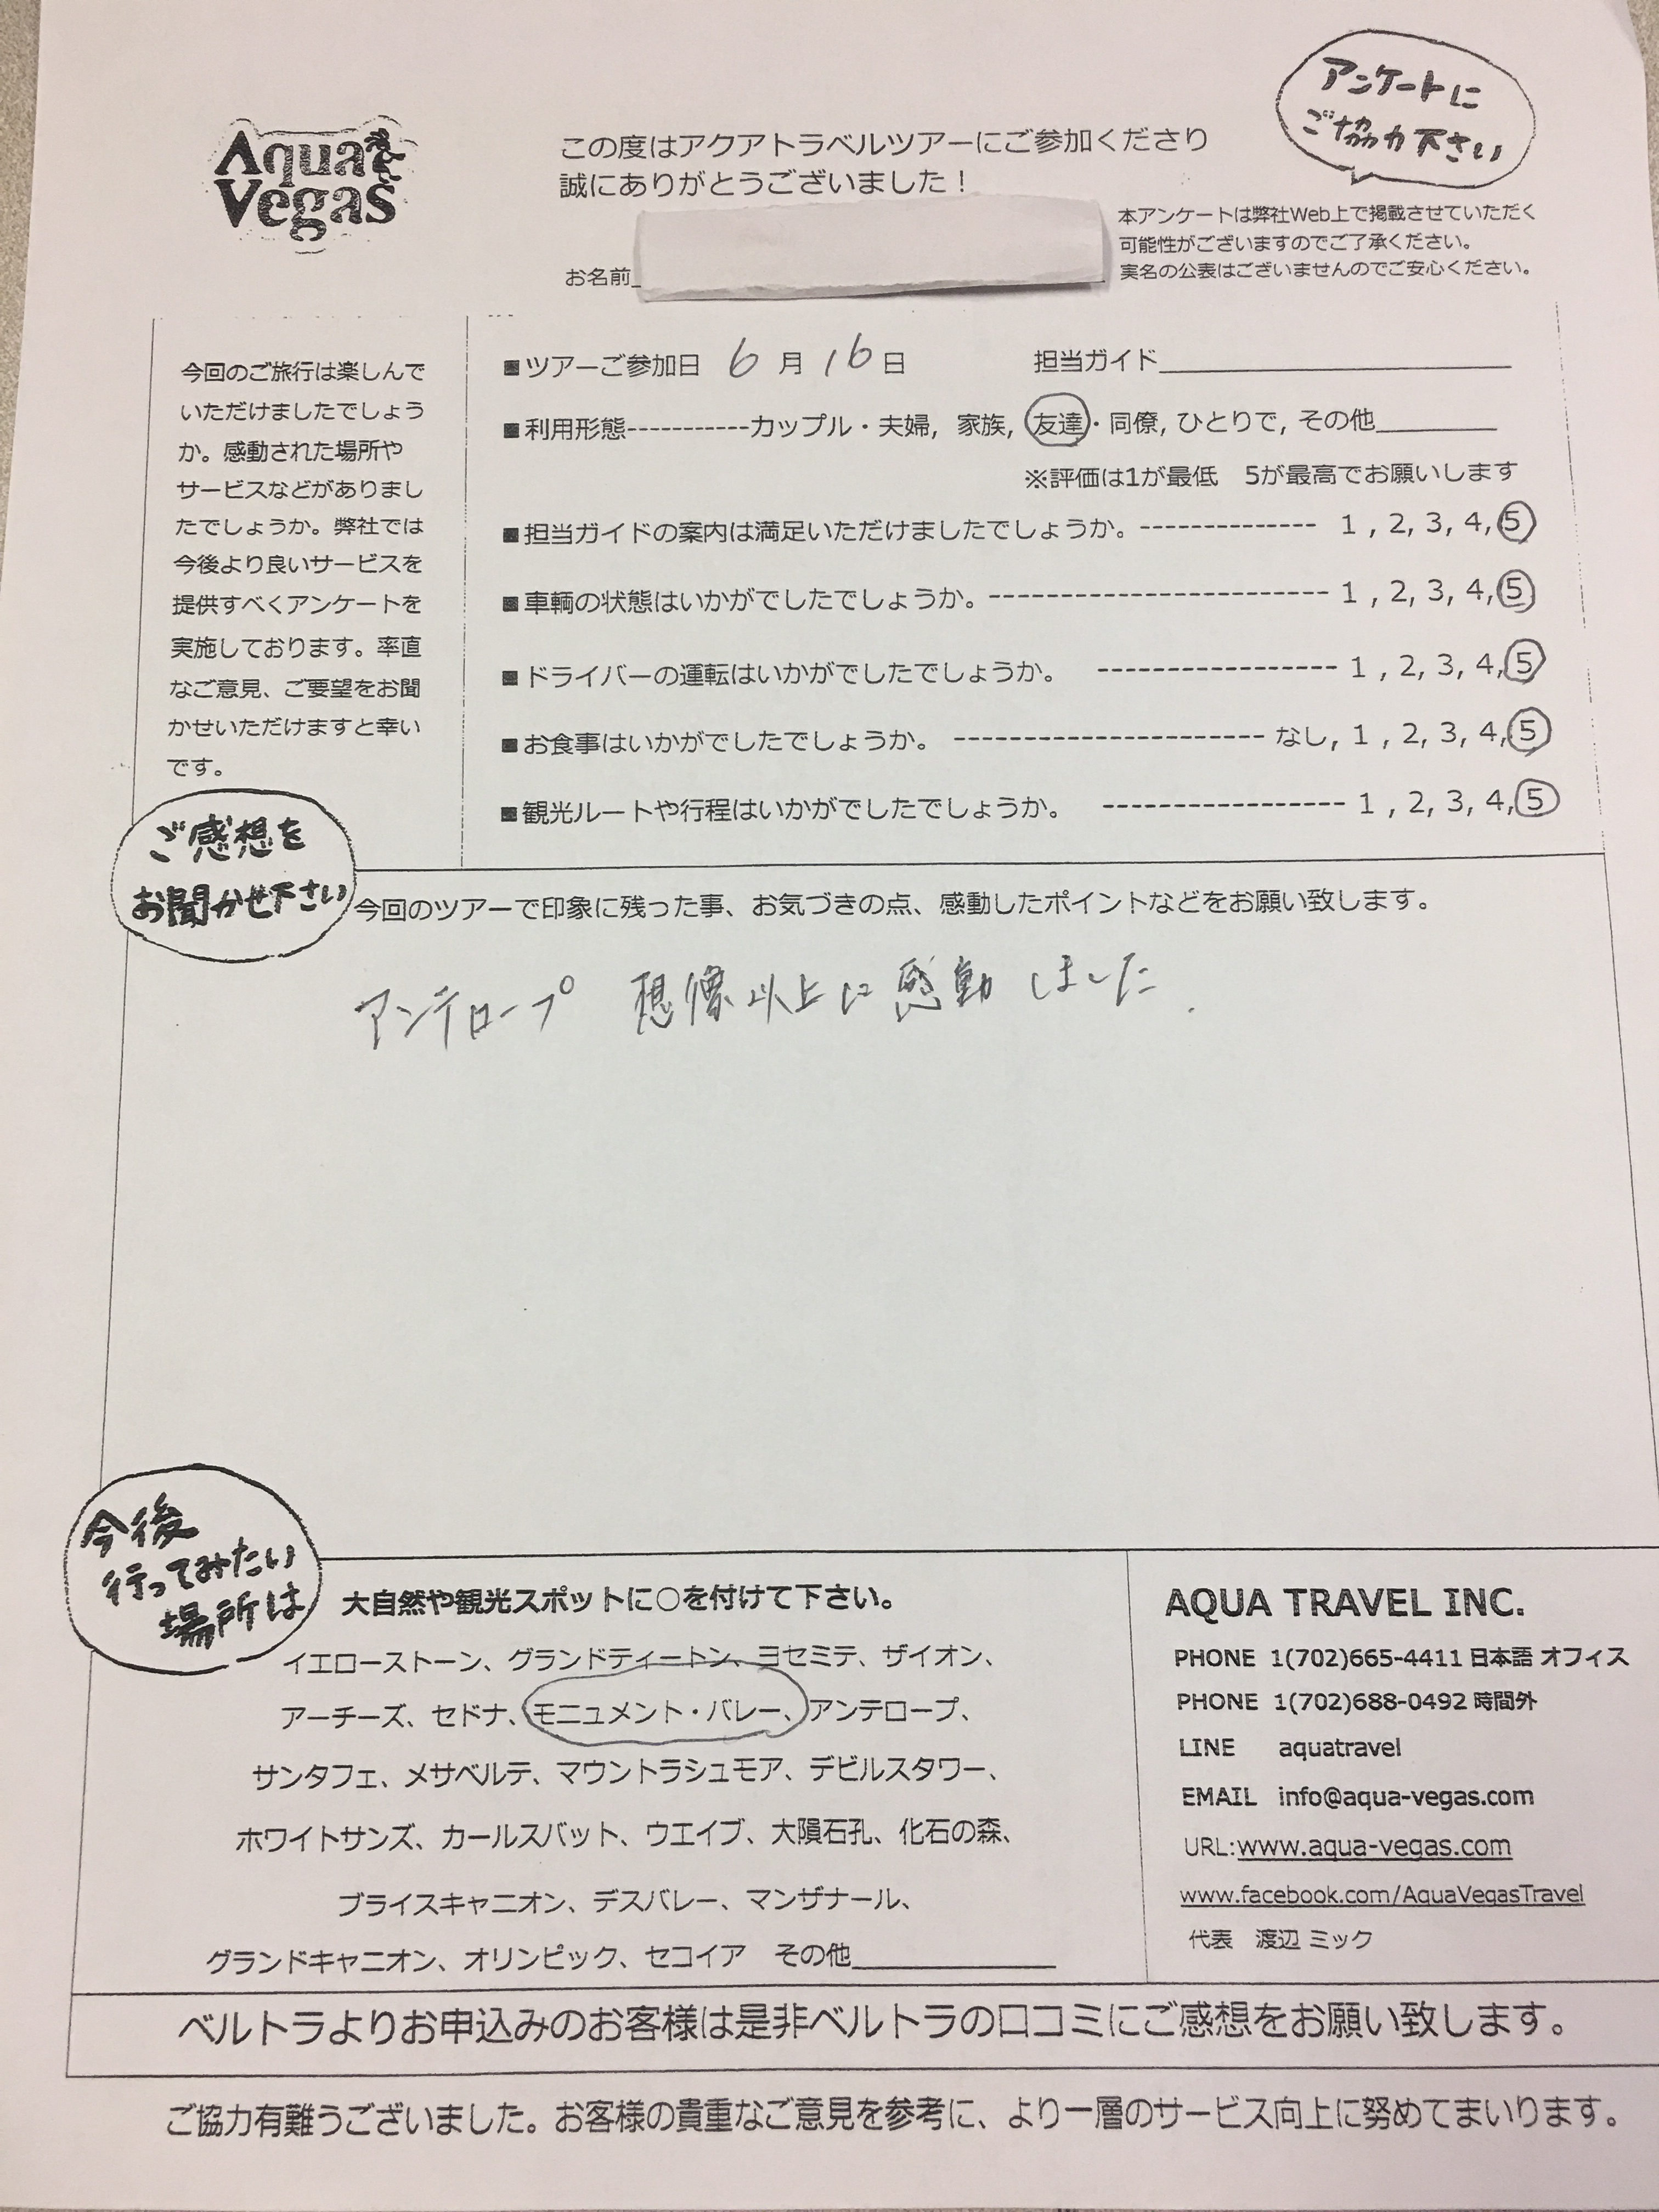 Aqua
Vegas
アンケートに
ご協力下さい
この度はアクアトラベルツアーにご参加くださり
誠にありがとうございました！
お名前
本アンケートは弊社Web上で掲載させていただく
可能性がございますのでご了承ください。
実名の公表はございませんのでご安心ください。
今回のご旅行は楽しんで
いただけましたでしょう
か。感動された場所や
サービスなどがありまし
たでしょうか。弊社では
今後より良いサービスを
提供すべくアンケートを
実施しております。率直
なご意見、ご要望をお聞
かせいただけますと幸い
です。
■ツアーご参加日 6月16日 担当ガイド
■利用形態-----------カップル・夫婦, 家族, 友達・同僚, ひとりで, その他
※評価は1が最低 5が最高でお願いします
■担当ガイドの案内は満足いただけましたでしょうか。-------------- 1 , 2, 3, 4, 5
■車輌の状態はいかがでしたでしょうか。--------------------------- 1 , 2, 3, 4, 5
■ドライバーの運転はいかがでしたでしょうか。 ------------------ 1 , 2, 3, 4, 5
■お食事はいかがでしたでしょうか。 ----------------------- なし, 1 , 2, 3, 4, 5
■観光ルートや行程はいかがでしたでしょうか。 ------------------ 1 , 2, 3, 4, 5
ご感想を
お聞かせ下さい
今回のツアーで印象に残った事、お気づきの点、感動したポイントなどをお願い致します。
アンテロープ 想像以上に感動しました.
今後
行ってみたい
場所は
大自然や観光スポットに○を付けて下さい。
イエローストーン、グランドティートン、ヨセミテ、ザイオン、
アーチーズ、セドナ、モニュメント・バレー、アンテロープ、
サンタフェ、メサベルテ、マウントラシュモア、デビルスタワー、
ホワイトサンズ、カールスバット、ウエイブ、大隕石孔、化石の森、
ブライスキャニオン、デスバレー、マンザナール、
グランドキャニオン、オリンピック、セコイア その他
AQUA TRAVEL INC.
PHONE 1(702)665-4411 日本語 オフィス
PHONE 1(702)688-0492 時間外
LINE aquatravel
EMAIL info@aqua-vegas.com
URL:www.aqua-vegas.com
www.facebook.com/AquaVegasTravel
代表 渡辺 ミック
ベルトラよりお申込みのお客様は是非ベルトラの口コミにご感想をお願い致します。
ご協力有難うございました。お客様の貴重なご意見を参考に、より一層のサービス向上に努めてまいります。